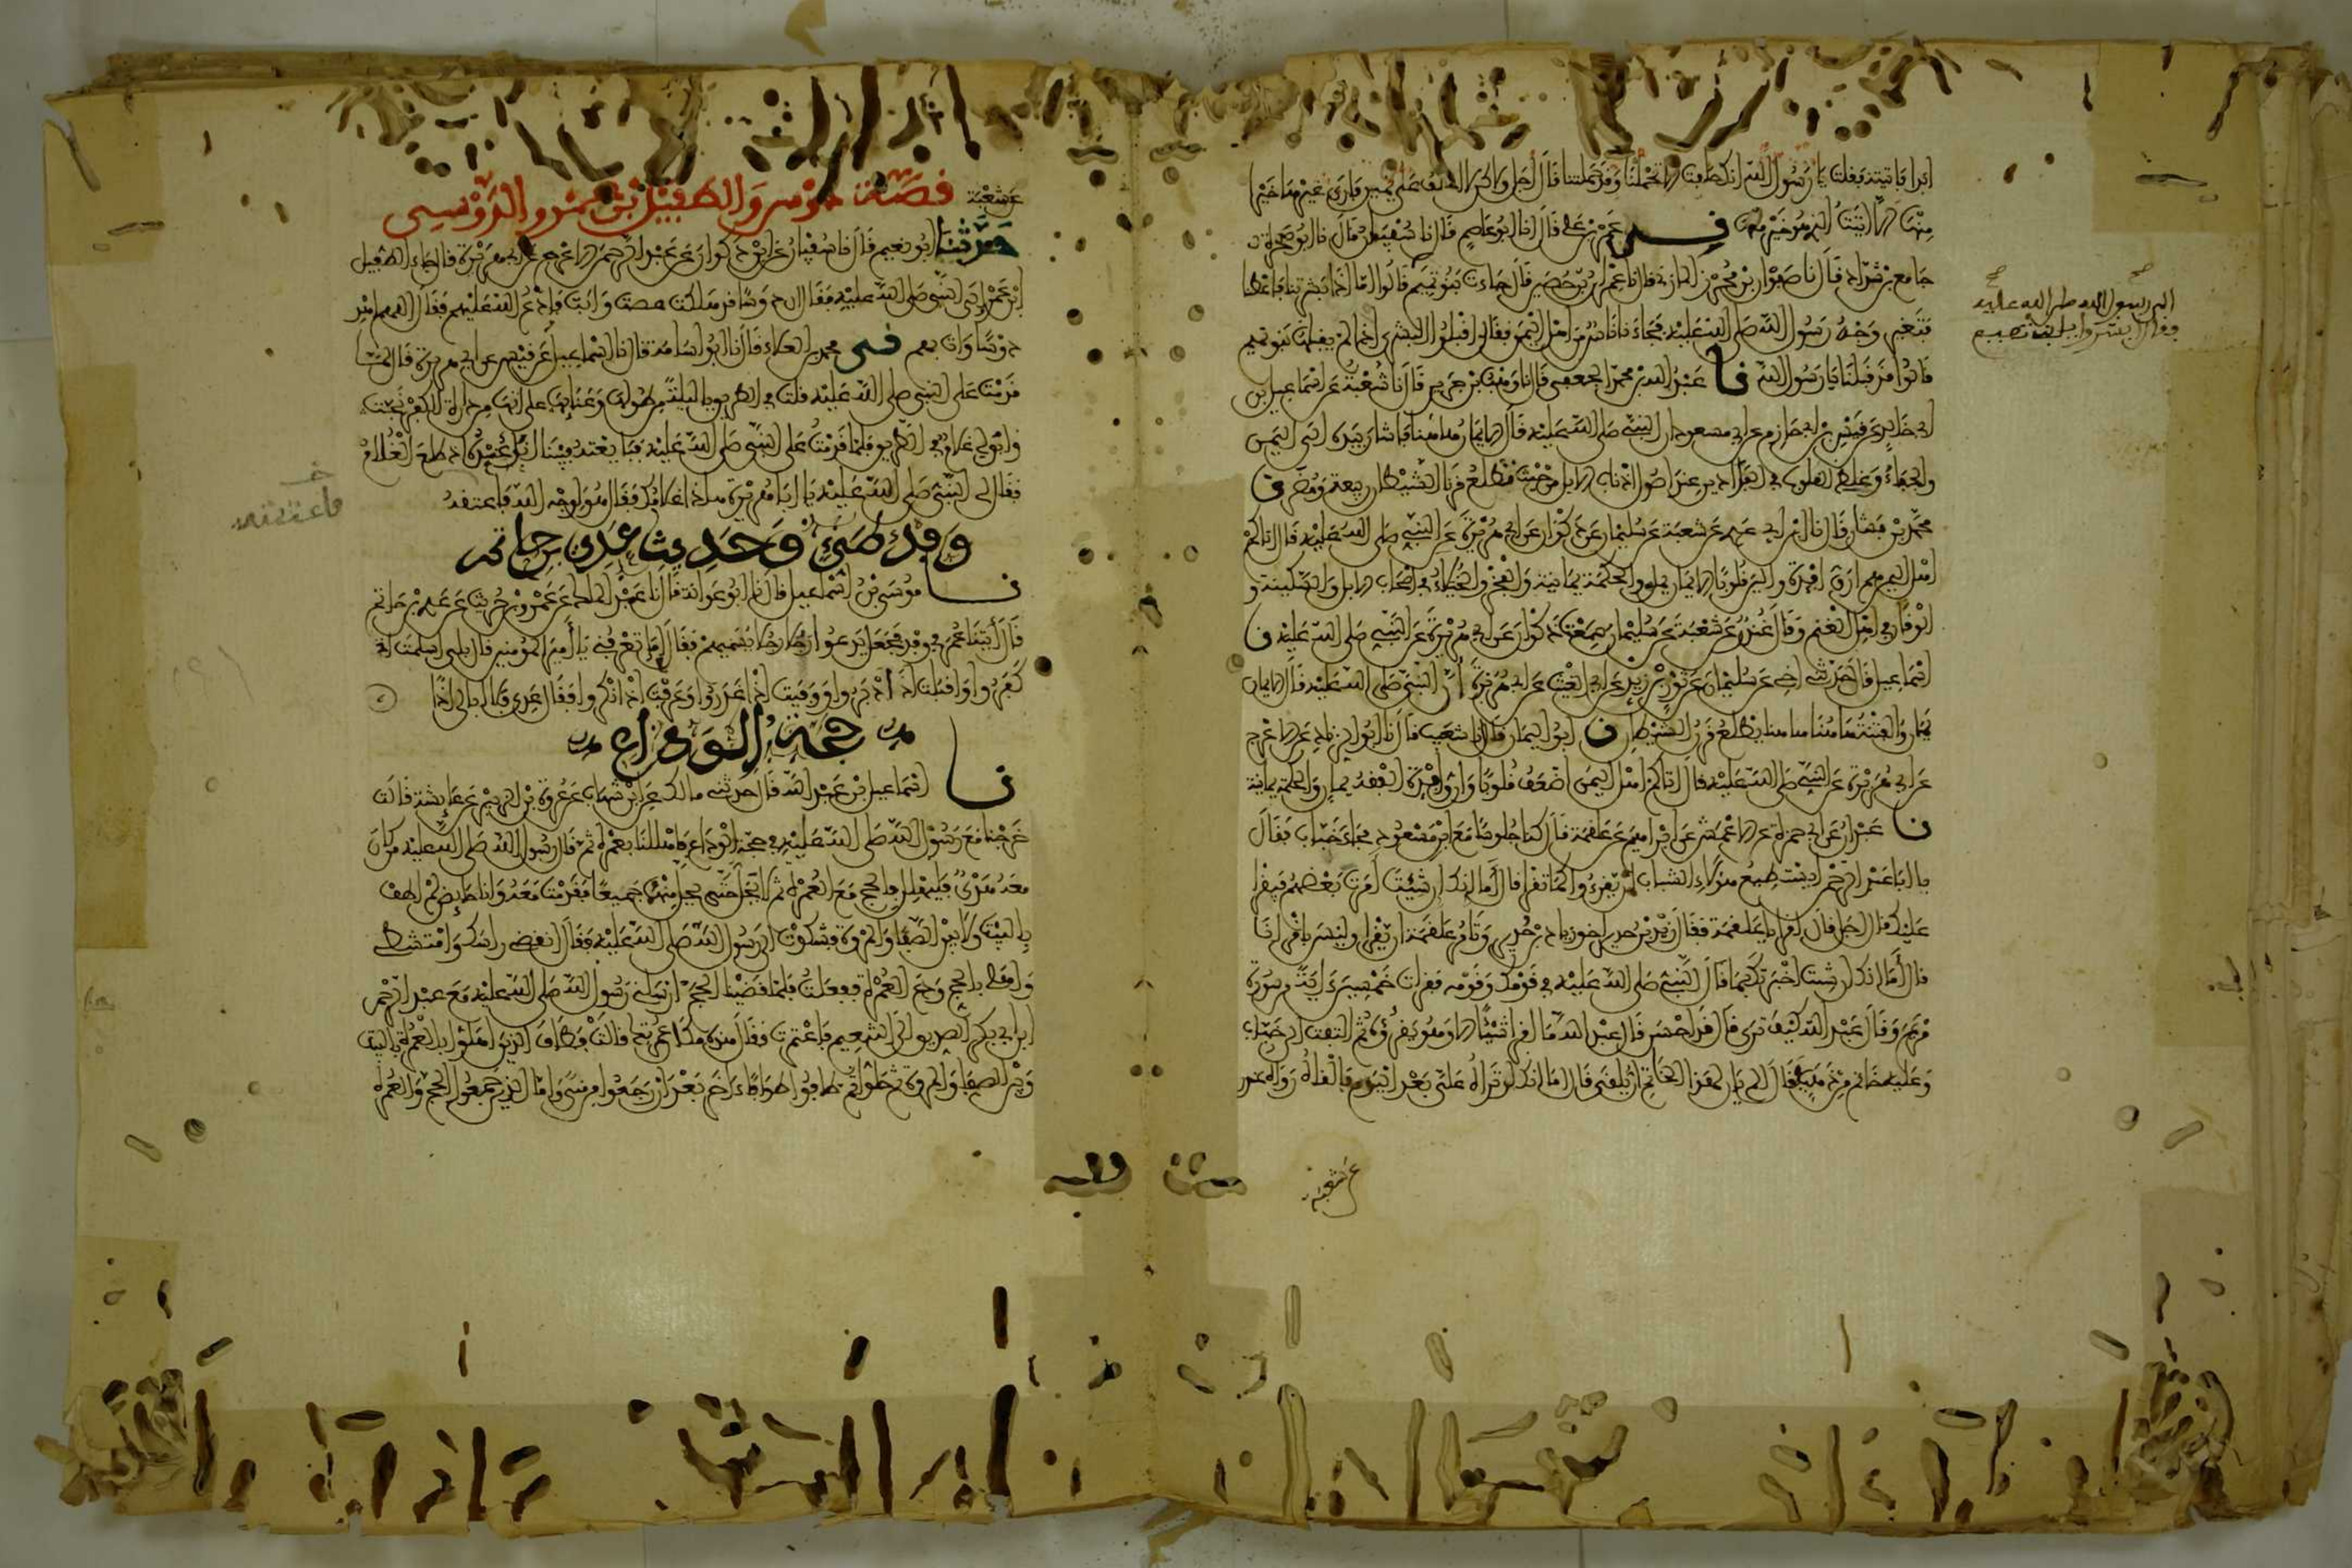 ابدا فاتيته فقلت يا رسول الله انك حلفت ان لا تحملنا وقد حملتنا قال اجل ولكن لا احلف على يمين فارى غيرها خيرا
منها الا اتيت الذي هو خير منها في عمرو بن علي قال نا ابو عاصم قال نا سفيان قال نا ابو صخرة
جامع بن شداد قال نا صفوان بن محرز المازني قال نا عمران بن حصين قال جاءت بنو تميم فقالوا اما اذ بشرتنا فاعطنا
فتغير وجه رسول الله صلى الله عليه فجاء ناس من اهل اليمن فقال اقبلوا البشرى اذ لم يقبلها بنو تميم
قالوا قد قبلنا يا رسول الله نا عبد الله بن محمد الجعفي قال نا وهب بن جرير قال نا شعبة عن اسماعيل بن
ابي خالد عن قيس بن ابي حازم عن ابي مسعود ان النبي صلى الله عليه قال الايمان هاهنا فاشار بيده الى اليمن
والجفاء وغلظ القلوب في الفدادين عند اصول اذناب الابل من حيث يطلع قرنا الشيطان ربيعة ومضر نا
محمد بن بشار قال نا ابن ابي عدي عن شعبة عن سليمان عن ذكوان عن ابي هريرة عن النبي صلى الله عليه قال اتاكم
اهل اليمن هم ارق افئدة والين قلوبا الايمان يمان والحكمة يمانية والفخر والخيلاء في اصحاب الابل والسكينة و
الوقار في اهل الغنم وقال غندر عن شعبة عن سليمان سمعت ذكوان عن ابي هريرة عن النبي صلى الله عليه نا
اسماعيل قال حدثني اخي عن سليمان عن ثور بن زيد عن ابي الغيث عن ابي هريرة ان النبي صلى الله عليه قال الايمان
يمان والفتنة هاهنا هاهنا يطلع قرن الشيطان نا ابو اليمان قال نا شعيب قال نا ابو الزناد عن الاعرج
عن ابي هريرة عن النبي صلى الله عليه قال اتاكم اهل اليمن اضعف قلوبا وارق افئدة الفقه يمان والحكمة يمانية
نا عبدان عن ابي حمزة عن الاعمش عن ابراهيم عن علقمة قال كنا جلوسا مع ابن مسعود فجاء خباب فقال
يا ابا عبد الرحمن ايستطيع هؤلاء الشباب ان يقرءوا كما تقرا قال اما انك ان شئت امرت بعضهم فيقرا
عليك قال اجل قال اقرا يا علقمة فقال زيد بن حدير اخو زياد بن حدير وتامر علقمة ان يقرا وليس باقرئنا
قال اما انك ان شئت اخبرتك بما قال النبي صلى الله عليه في قومك وقومه فقرات خمسين اية من سورة
مريم وقال عبد الله كيف ترى قال قد احسن قال عبد الله ما اقرا شيئا الا وهو يقرؤه ثم التفت الى خباب
وعليه خاتم من ذهب فقال الم يان لهذا الخاتم ان يلقى قال اما انك لن تراه علي بعد اليوم فالقاه رواه غندر
عن شعبة
الى رسول الله صلى الله عليه
فقال ابشروا يا بني تميم
عن شعبة
قصة دوس والطفيل بن عمرو الدوسي
حدثنا ابو نعيم قال نا سفيان عن ابن ذكوان عن عبد الرحمن الاعرج عن ابي هريرة قال جاء الطفيل
ابن عمرو الى النبي صلى الله عليه فقال ان دوسا قد هلكت عصت وابت فادع الله عليهم فقال اللهم اهد
دوسا وات بهم في محمد بن العلاء قال نا ابو اسامة قال نا اسماعيل عن قيس عن ابي هريرة قال لما
قدمت على النبي صلى الله عليه قلت في الطريق يا ليلة من طولها وعنائها على انها من دارة الكفر نجت
وابق لي غلام في الطريق فلما قدمت على النبي صلى الله عليه فبايعته فبينا انا عنده اذ طلع الغلام
فقال لي النبي صلى الله عليه يا ابا هريرة هذا غلامك فقال هو لوجه الله فاعتقه
فاعتقته
وفد طيئ وحديث عدي بن حاتم
نا موسى بن اسماعيل قال نا ابو عوانة قال نا عبد الملك عن عمرو بن حريث عن عدي بن حاتم
قال اتينا عمر في وفد فجعل يدعو رجلا رجلا يسميهم فقال اما تعرفني يا امير المؤمنين قال بلى اسلمت اذ
كفروا واقبلت اذ ادبروا ووفيت اذ غدروا وعرفت اذ انكروا فقال عدي فلا ابالي اذا
حجة الوداع
نا اسماعيل بن عبد الله قال حدثني مالك عن ابن شهاب عن عروة بن الزبير عن عائشة قالت
خرجنا مع رسول الله صلى الله عليه في حجة الوداع فاهللنا بعمرة ثم قال رسول الله صلى الله عليه من كان
معه هدي فليهلل بالحج مع العمرة ثم لا يحل حتى يحل منهما جميعا فقدمت معه وانا حائض لم اطف
بالبيت ولا بين الصفا والمروة فشكوت الى رسول الله صلى الله عليه فقال انقضي راسك وامتشطي
واهلي بالحج ودعي العمرة ففعلت فلما قضينا الحج ارسلني رسول الله صلى الله عليه مع عبد الرحمن
ابن ابي بكر الصديق الى التنعيم فاعتمرت فقال هذه مكان عمرتك قالت فطاف الذين اهلوا بالعمرة بالبيت
وبين الصفا والمروة ثم حلوا ثم طافوا طوافا اخر بعد ان رجعوا من منى واما الذين جمعوا الحج والعمرة